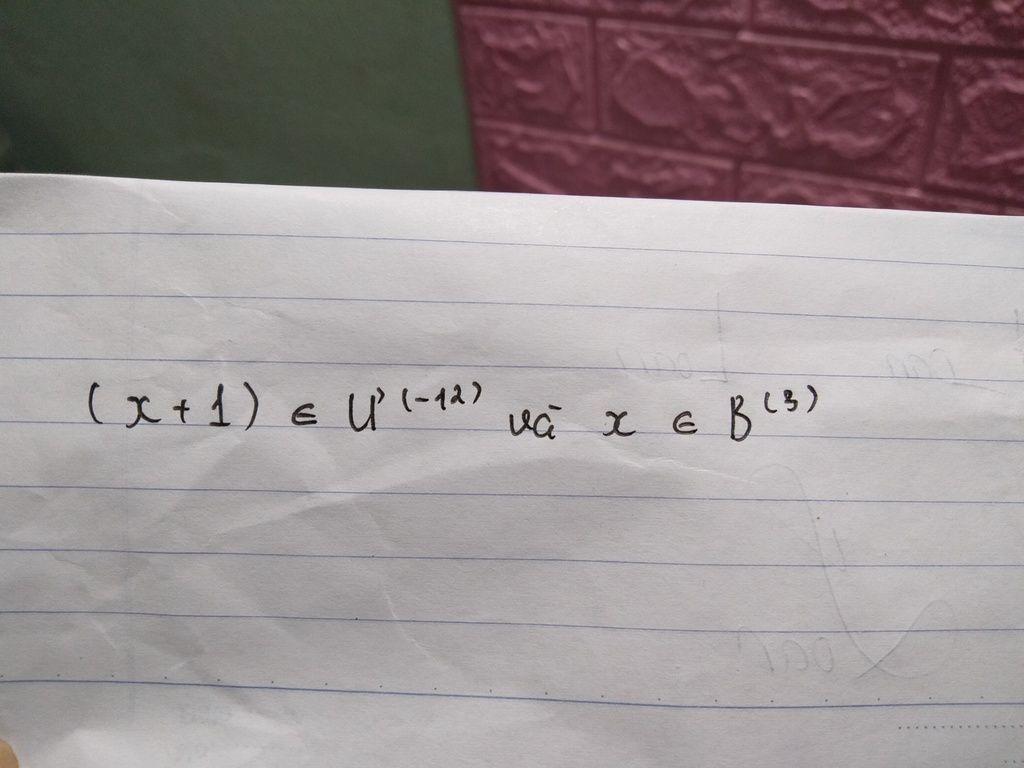 (x+1) ∈ Ư(-12) và x ∈ B(3)